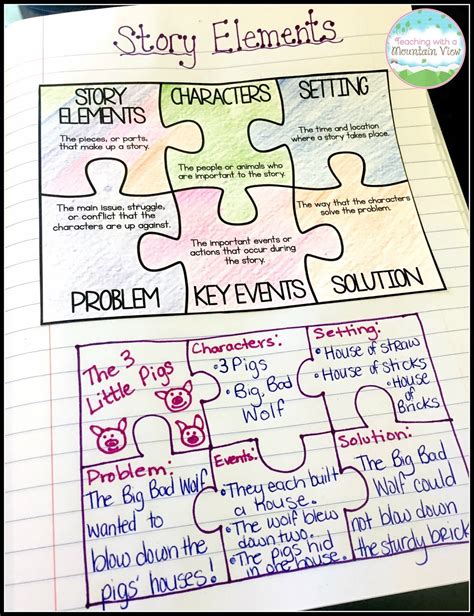 Teaching with a
Mountain View
Story Elements
STORY
ELEMENTS
The pieces, or parts,
that make up a story.
CHARACTERS
The people or animals who
are important to the story.
SETTING
The time and location
where a story takes place.
The main issue, struggle,
or conflict that the
characters are up against.
PROBLEM
The important events or
actions that occur during
the story.
KEY EVENTS
The way that the characters
solve the problem.
SOLUTION
The 3
Little Pigs
Characters:
• 3 Pigs
• Big, Bad
Wolf
Setting:
• House of straw
• House of sticks
• House
of
Bricks
Problem:
The Big Bad Wolf
wanted to
blow down the
pigs' houses!
Events:
• They each built
a house.
• The wolf blew
down two.
• The pigs hid
in one house.
Solution:
The Big Bad
Wolf could
not blow down
the sturdy brick